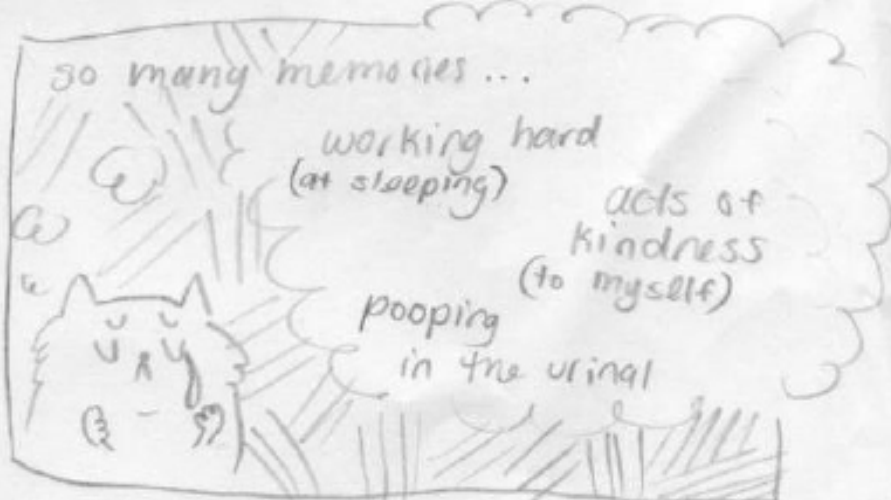 so many memories...
working hard
(at sleeping)
acts of
kindness
(to myself)
pooping
in the urinal